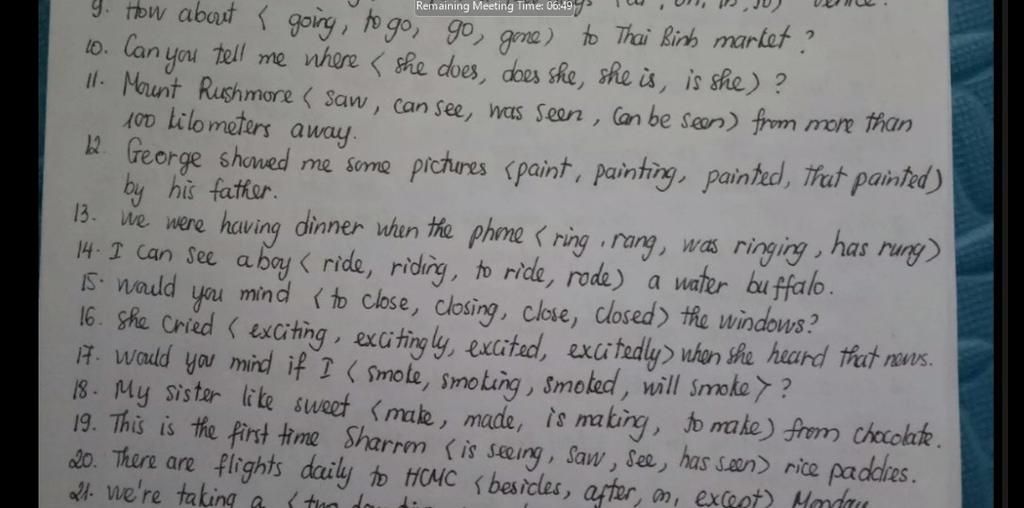 Remaining Meeting Time: 06:49
9. How about ( going, to go, go, gone) to Thai Binh market?
10. Can you tell me where ( she does, does she, she is, is she) ?
11. Mount Rushmore ( saw, can see, was seen, can be seen) from more than
100 kilometers away.
12. George showed me some pictures (paint, painting, painted, that painted)
by his father.
13. We were having dinner when the phone ( ring, rang, was ringing, has rung)
14. I can see a boy ( ride, riding, to ride, rode) a water buffalo.
15. Would you mind ( to close, closing, close, closed) the windows?
16. She cried ( exciting, excitingly, excited, excitedly) when she heard that news.
17. Would you mind if I ( smoke, smoking, smoked, will smoke) ?
18. My sister like sweet (make, made, is making, to make) from chocolate.
19. This is the first time Sharron (is seeing, saw, see, has seen) rice paddies.
20. There are flights daily to HCMC (besides, after, on, except) Monday
21. we're taking a